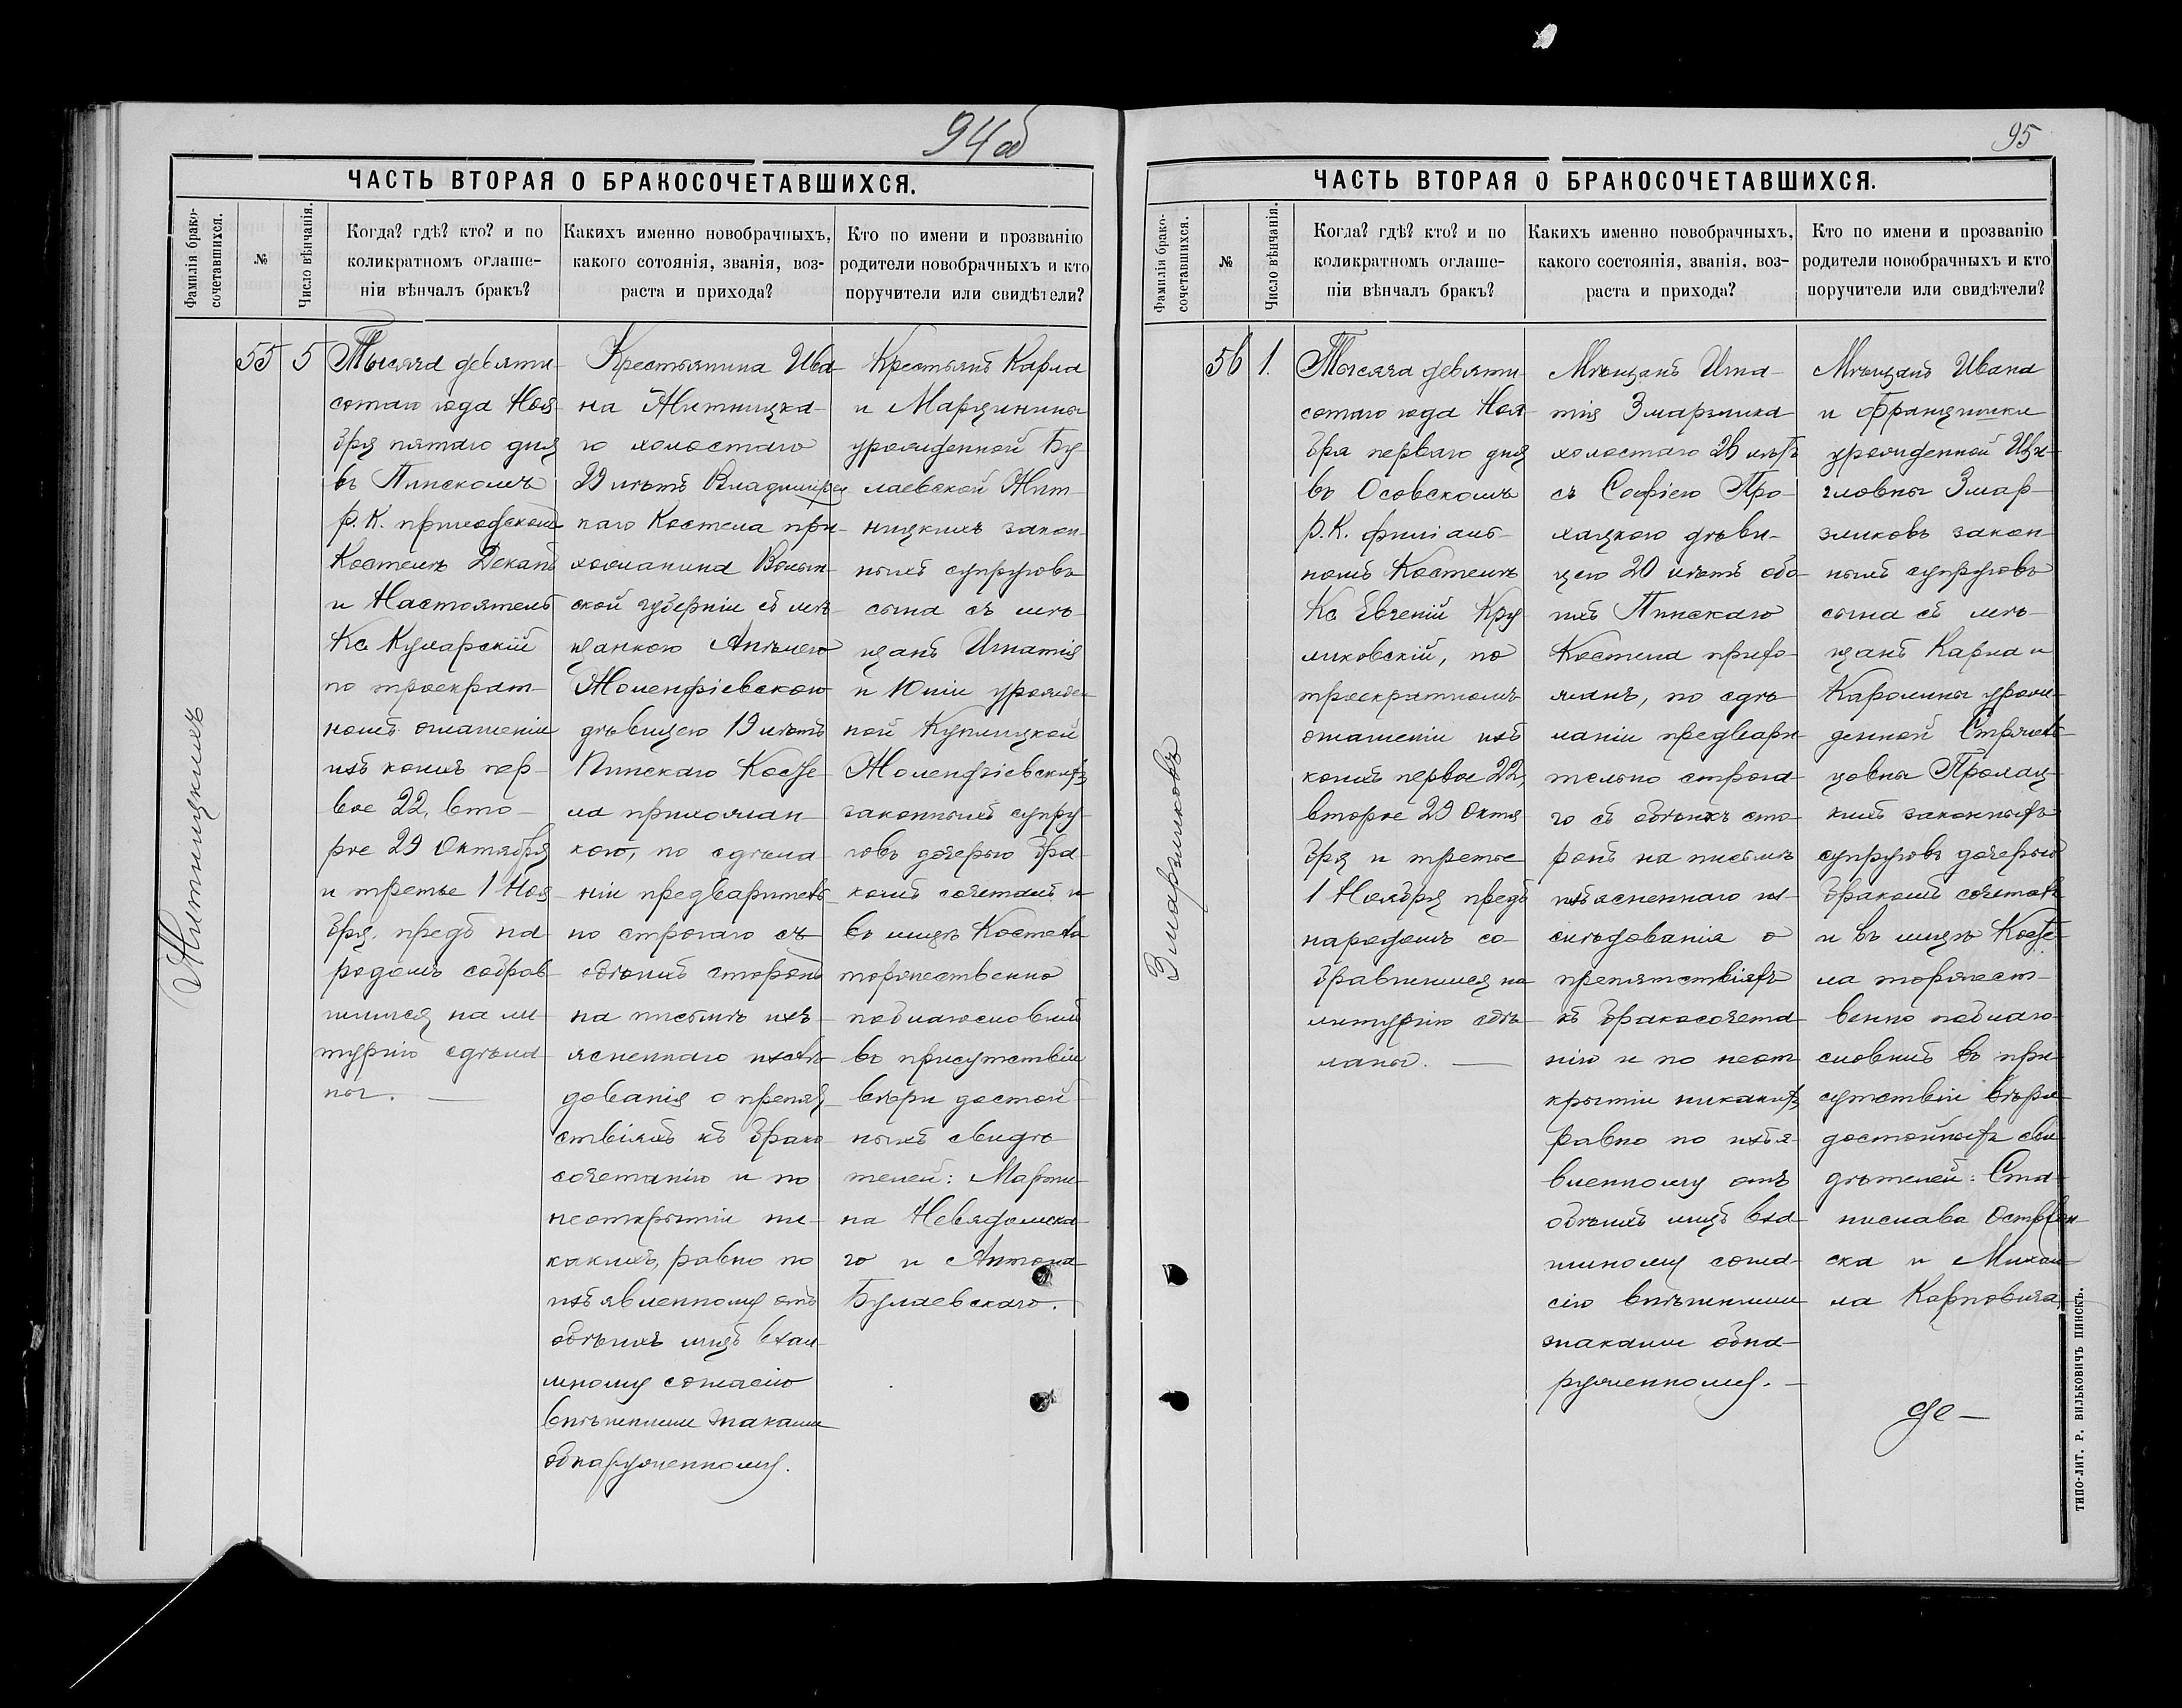 94об
ЧАСТЬ ВТОРАЯ О БРАКОСОЧЕТАВШИХСЯ.
Фамилія брако-
сочетавшихся.
№
Число вѣнчанія.
Когда? гдѣ? кто? и по
коликратномъ оглаше-
ніи вѣнчалъ бракъ?
Какихъ именно новобрачныхъ,
какого сотоянія, званія, воз-
раста и прихода?
Кто по имени и прозванію
родители новобрачныхъ и кто
поручители или свидѣтели?
Житницкихъ
55
5
Тысяча девяти-
сотаго года Ноя-
бря пятаго дня
въ Пинскомъ
Р. К. приходскомъ
Костелѣ Деканъ
и Настоятель
Кс.
по троекрат-
номъ оглашеніи
изъ коихъ пер-
вое 22, вто-
рое 29 Октября
и третье 1 Ноя
бря, предъ на-
родомъ собрав-
шимся на ли-
тургію сдѣла-
ны. —
Крестьянина Ива-
на Житницка-
го холостаго
29 лѣтъ Владимірс
каго Костела при-
хожанина Волын-
ской губерніи съ мѣ-
щанкою Анѣлею
Жоленфіевскою
дѣвицею 19 лѣтъ
Пинскаго Косте-
ла прихожан-
кою, по сдѣла-
ніи предваритель-
но строгаго съ
обѣихъ сторонъ
на письмѣ изъ-
ясненнаго изслѣ-
дованія о препят-
ствіяхъ къ брако-
сочетанію и по
неоткрытіи ни-
какихъ, равно по
изъявленному отъ
обѣихъ лицъ взаи-
мному согласію
внѣшними знаками
обнаруженному.
Крестьянъ Карла
и Марцинины
урожденной Бу-
лаевской Жит-
ницкихъ закон-
ныхъ супруговъ
сына съ мѣ-
щанъ Игнатія
и Юліи урожден-
ной Куплицкой
Жоленфіевскихъ
законныхъ супру-
говъ дочерью бра-
комъ сочеталъ и
въ лицѣ Костела
торжественно
поблагословилъ
въ присутствіи
вѣры достой-
ныхъ свидѣ-
телей: Марти-
на Невядомска-
го и Антона
Булаевскаго.
95
ЧАСТЬ ВТОРАЯ О БРАКОСОЧЕТАВШИХСЯ.
Фамилія брако-
сочетавшихся.
№
Число вѣнчанія.
Когда? гдѣ? кто? и по
коликратномъ оглаше-
ніи вѣнчалъ бракъ?
Какихъ именно новобрачныхъ,
какого состоянія, званія, воз-
раста и прихода?
Кто по имени и прозванію
родители новобрачныхъ и кто
поручители или свидѣтели?
Змарзликовъ
56
1.
Тысяча девяти-
сотаго года Ноя-
бря перваго дня
въ Осовскомъ
Р. К. филіаль-
номъ Костелѣ
Кс. Евгеній Кру-
ликовскій, по
троекратномъ
оглашеніи изъ
коихъ первое 22,
второе 29 Октя-
бря и третье
1 Ноября предъ
народомъ со-
бравшимся на
литургію сдѣ-
ланы. —
Мѣщанъ Игна-
тія Змарзлика
холостаго 26 лѣтъ
съ Софіею Про-
хацкою дѣви-
цею 20 лѣтъ обо-
ихъ Пинскаго
Костела прихо-
жанъ, по сдѣ-
ланіи предвари-
тельно строга-
го съ обѣихъ сто-
ронъ на письмѣ
изъясненнаго из-
слѣдованія о
препятствіяхъ
къ бракосочета-
нію и по неот-
крытіи никакихъ
равно по изъя-
вленному отъ
обѣихъ лицъ вза-
имному согла-
сію внѣшними
знаками обна-
руженному. —
Мѣщанъ Ивана
и Францишки
урожденной
Змар-
зликовъ закон-
ныхъ супруговъ
сына съ мѣ-
щанъ Карла и
Каролины урож-
денной
Прохац-
кихъ законныхъ
супруговъ дочерью
бракомъ сочеталъ
и въ лицѣ Косте-
ла торжест-
венно поблаго-
словилъ въ при-
сутствіи вѣры
достойныхъ сви-
дѣтелей: Ста-
нислава
и Михаи-
ла Карповича.
ТИПО-ЛИТ. Р. ВИЛЬКОВИЧЪ ПИНСКЪ.